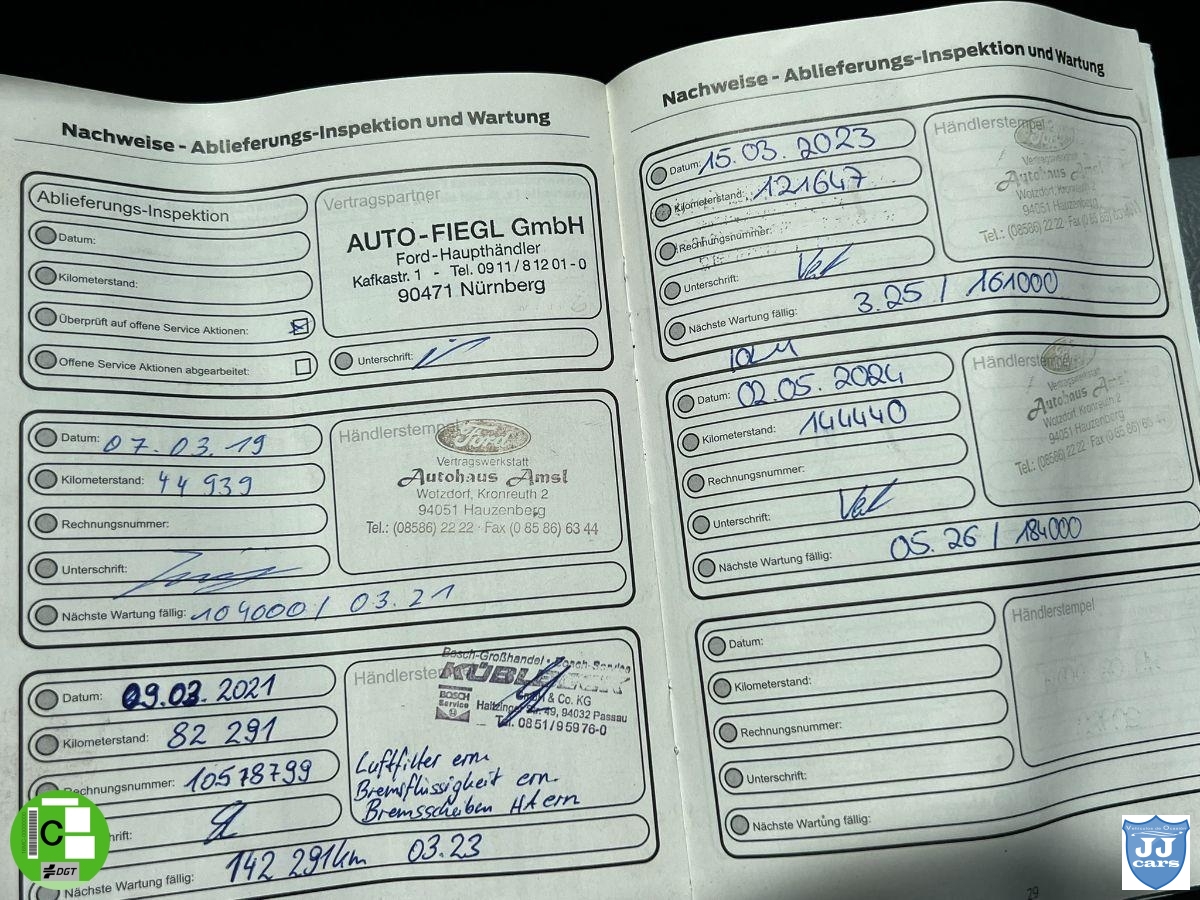 Nachweise - Ablieferungs-Inspektion und Wartung
Ablieferungs-Inspektion
Datum:
Kilometerstand:
Überprüft auf offene Service Aktionen:
Offene Service Aktionen abgearbeitet:
Vertragspartner
AUTO-FIEGL GmbH
Ford-Haupthändler
Kafkastr. 1 - Tel. 0911/81201-0
90471 Nürnberg
Unterschrift:
Datum: 07.03.19
Kilometerstand: 44939
Rechnungsnummer:
Unterschrift:
Nächste Wartung fällig: 104000 / 03.21
Händlerstempel
Ford
Vertragswerkstatt
Autohaus Amsl
Wotzdorf, Kronreuth 2
94051 Hauzenberg
Tel.: (08586) 22 22 · Fax (0 85 86) 63 44
Datum: 09.03.2021
Kilometerstand: 82 291
Rechnungsnummer: 10578799
hrift:
Nächste Wartung fällig: 142 291km 03.23
Händlerstem
Bosch-Großhandel · Bosch-Service
BOSCH
Service
& Co. KG
49, 94032 Passau
Tel. 0851/95976-0
Luftfilter ern.
Bremsflüssigkeit ern.
Bremsscheiben HA ern
C
DGT
Nachweise - Ablieferungs-Inspektion und Wartung
Datum: 15.03.2023
Kilometerstand: 121647
Rechnungsnummer:
Unterschrift:
Nächste Wartung fällig: 3.25 / 161000
Händlerstempel
Ford
Vertragswerkstatt
Autohaus Amsl
Wotzdorf, Kronreuth 2
94051 Hauzenberg
Tel.: (08586) 22 22 · Fax (0 85 86) 63
Datum: 02.05.2024
Kilometerstand: 144440
Rechnungsnummer:
Unterschrift:
Nächste Wartung fällig: 05.26 / 184000
Händlerstempel
Ford
Vertragswerkstatt
Autohaus Amsl
Wotzdorf, Kronreuth 2
94051 Hauzenberg
Tel.: (08586) 22 22 · Fax (0 85 86) 63
Datum:
Kilometerstand:
Rechnungsnummer:
Unterschrift:
Nächste Wartung fällig:
Händlerstempel
29
JJ
cars